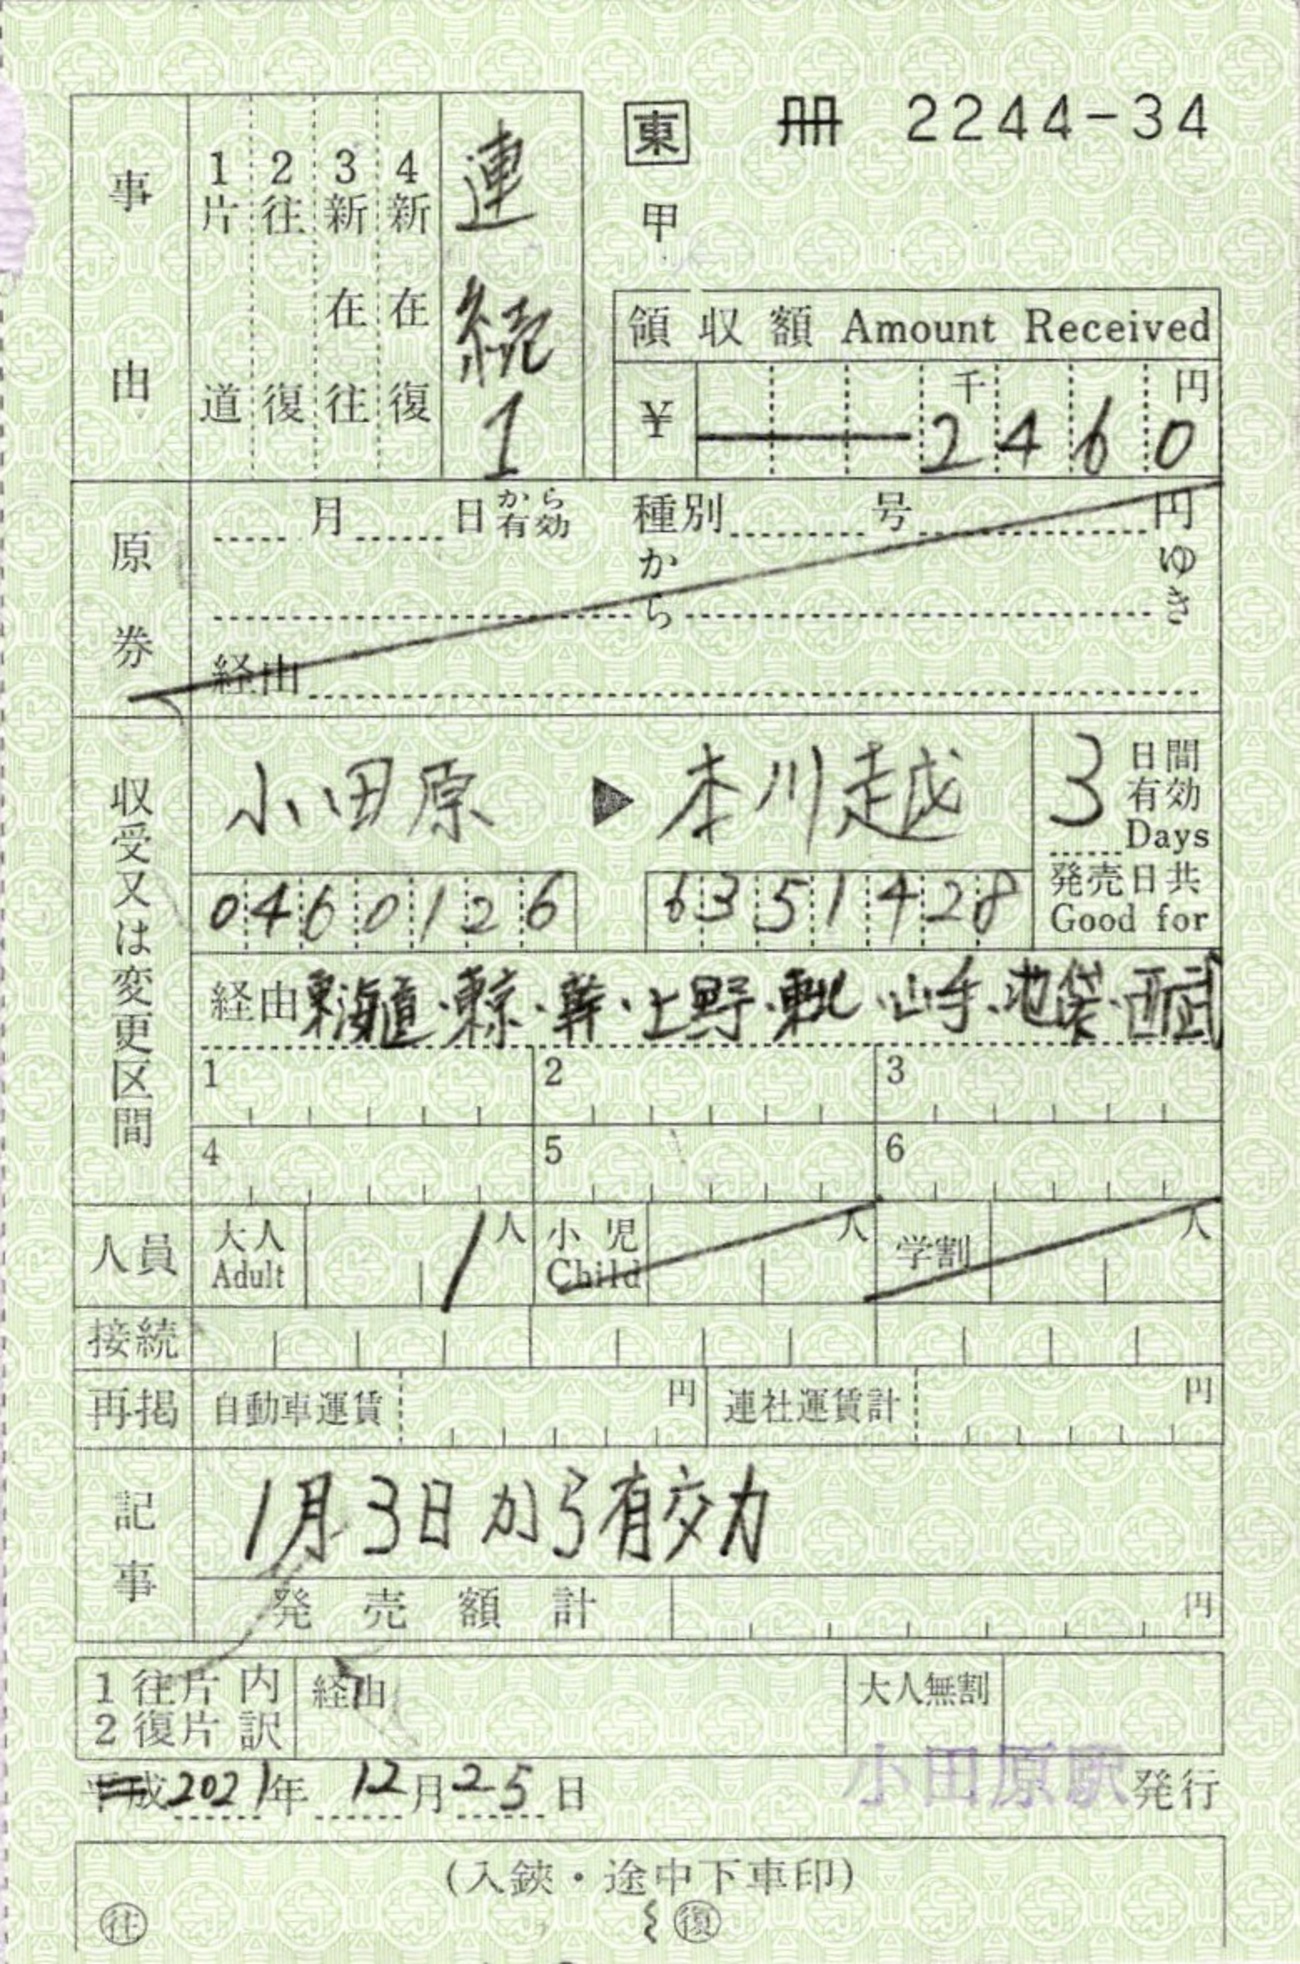 東 冊 2244-34
甲
事由
1片道
2往復
3新在往
4新在復
連続1
領収額 Amount Received
¥ 千 円
2460
原券
月 日から有効 種別 号 円
から ゆき
経由
収受又は変更区間
小田原 ▶ 本川越
3日間有効
Days
発売日共
Good for
0460126 6351428
経由 東海道・東京・幹・上野・東北・山手・池袋・西武
1 2 3
4 5 6
人員 大人 Adult 1人 小児 Child 人 学割 人
接続
再掲 自動車運賃 円 連社運賃計 円
記事
1月3日から有効
発売額計 円
1往片内訳
2復片
経由
大人無割
平成2021年12月25日 小田原駅発行
(入鋏・途中下車印)
往 復